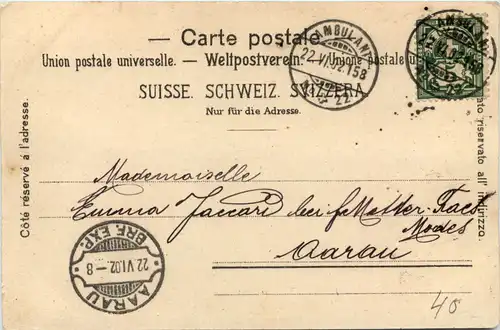 — Carte postale. —
Union postale universelle. — Weltpostverein. — Unione postale u
SUISSE. SCHWEIZ. SVIZZERA.
Nur für die Adresse.
Côté réservé à l'adresse.
ato riservato all' i rizzo.
AMBULANT
22.VI.02.158
No 22
AMBULANT
22.VI.02.158
22
Mademoiselle
Emma Jaccari bei
Modes
Aarau
BRF. EXP.
22.VI.02.-8
AARAU
40